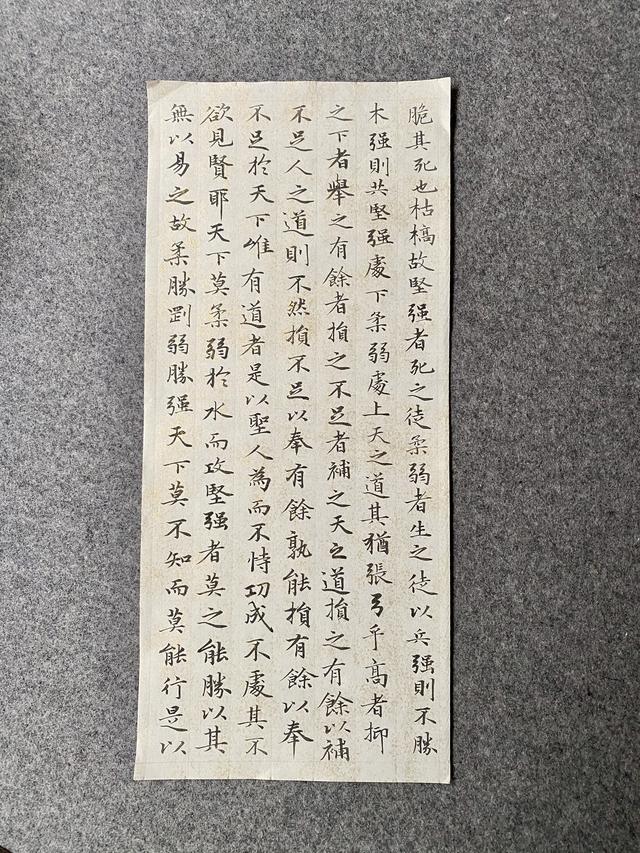 脆其死也枯槁故堅强者死之徒柔弱者生之徒以兵强則不勝
木强則共堅强處下柔弱處上天之道其猶張弓乎高者抑
之下者舉之有餘者損之不足者補之天之道損之有餘以補
不足人之道則不然損不足以奉有餘孰能損有餘以奉
不足於天下唯有道者是以聖人為而不恃功成不處其不
欲見賢耶天下莫柔弱於水而攻堅强者莫之能勝以其
無以易之故柔勝剛弱勝强天下莫不知而莫能行是以